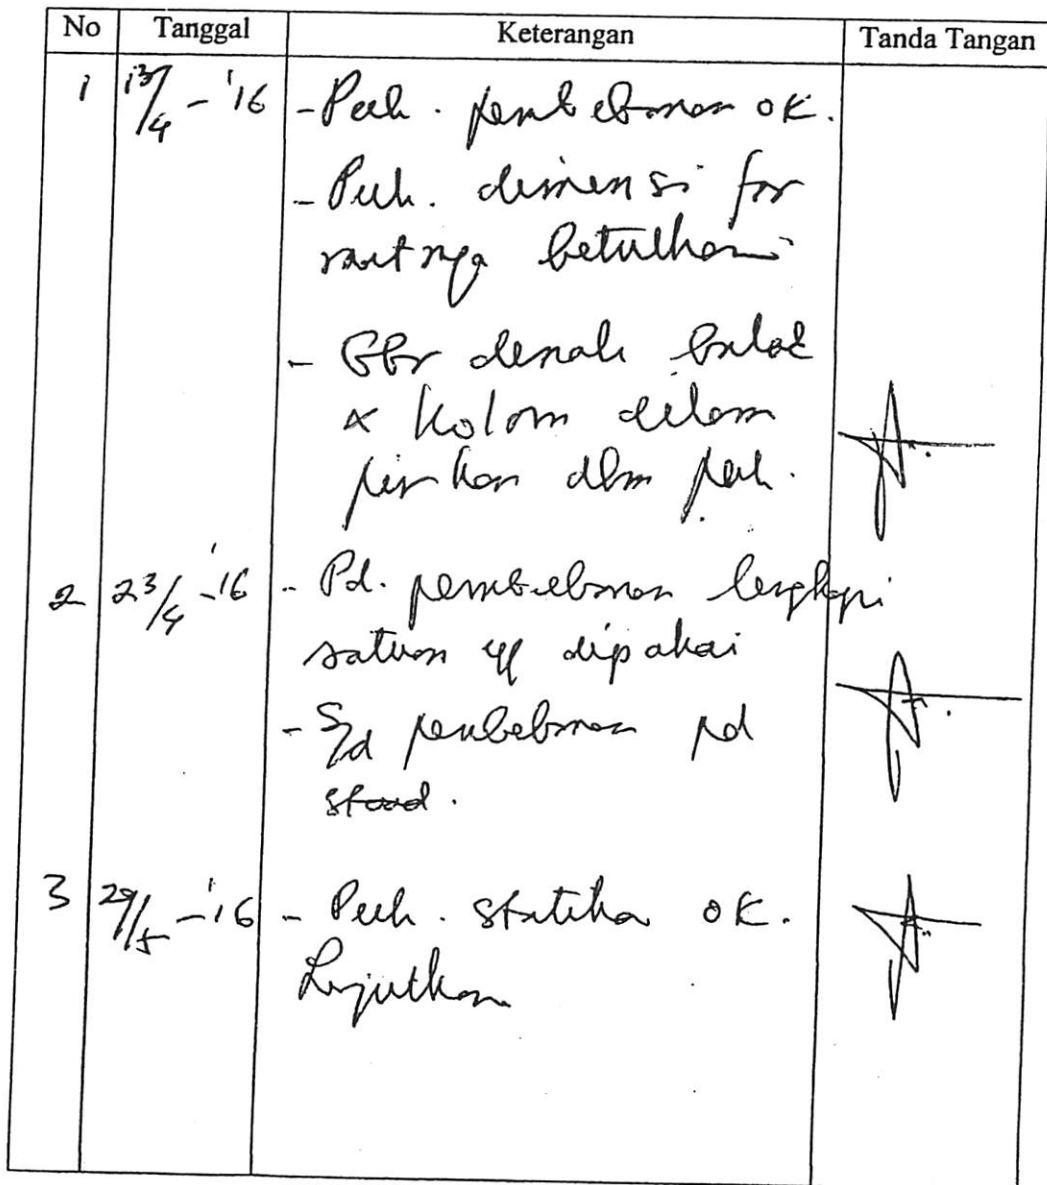 No Tanggal Keterangan Tanda Tangan
1 13/4 - '16 - Perh. pembebanan OK.
- Perh. dimensi for
matnya betulkan
- Gbr denah balok
& kolom dilam
pirkan dlm perh.
2 23/4 - '16 - Pd. pembebanan lengkapi
satuan yg dipakai
- S/d pembebanan pd
3 29/5 - '16 - Perh. statika OK.
Lanjutkan